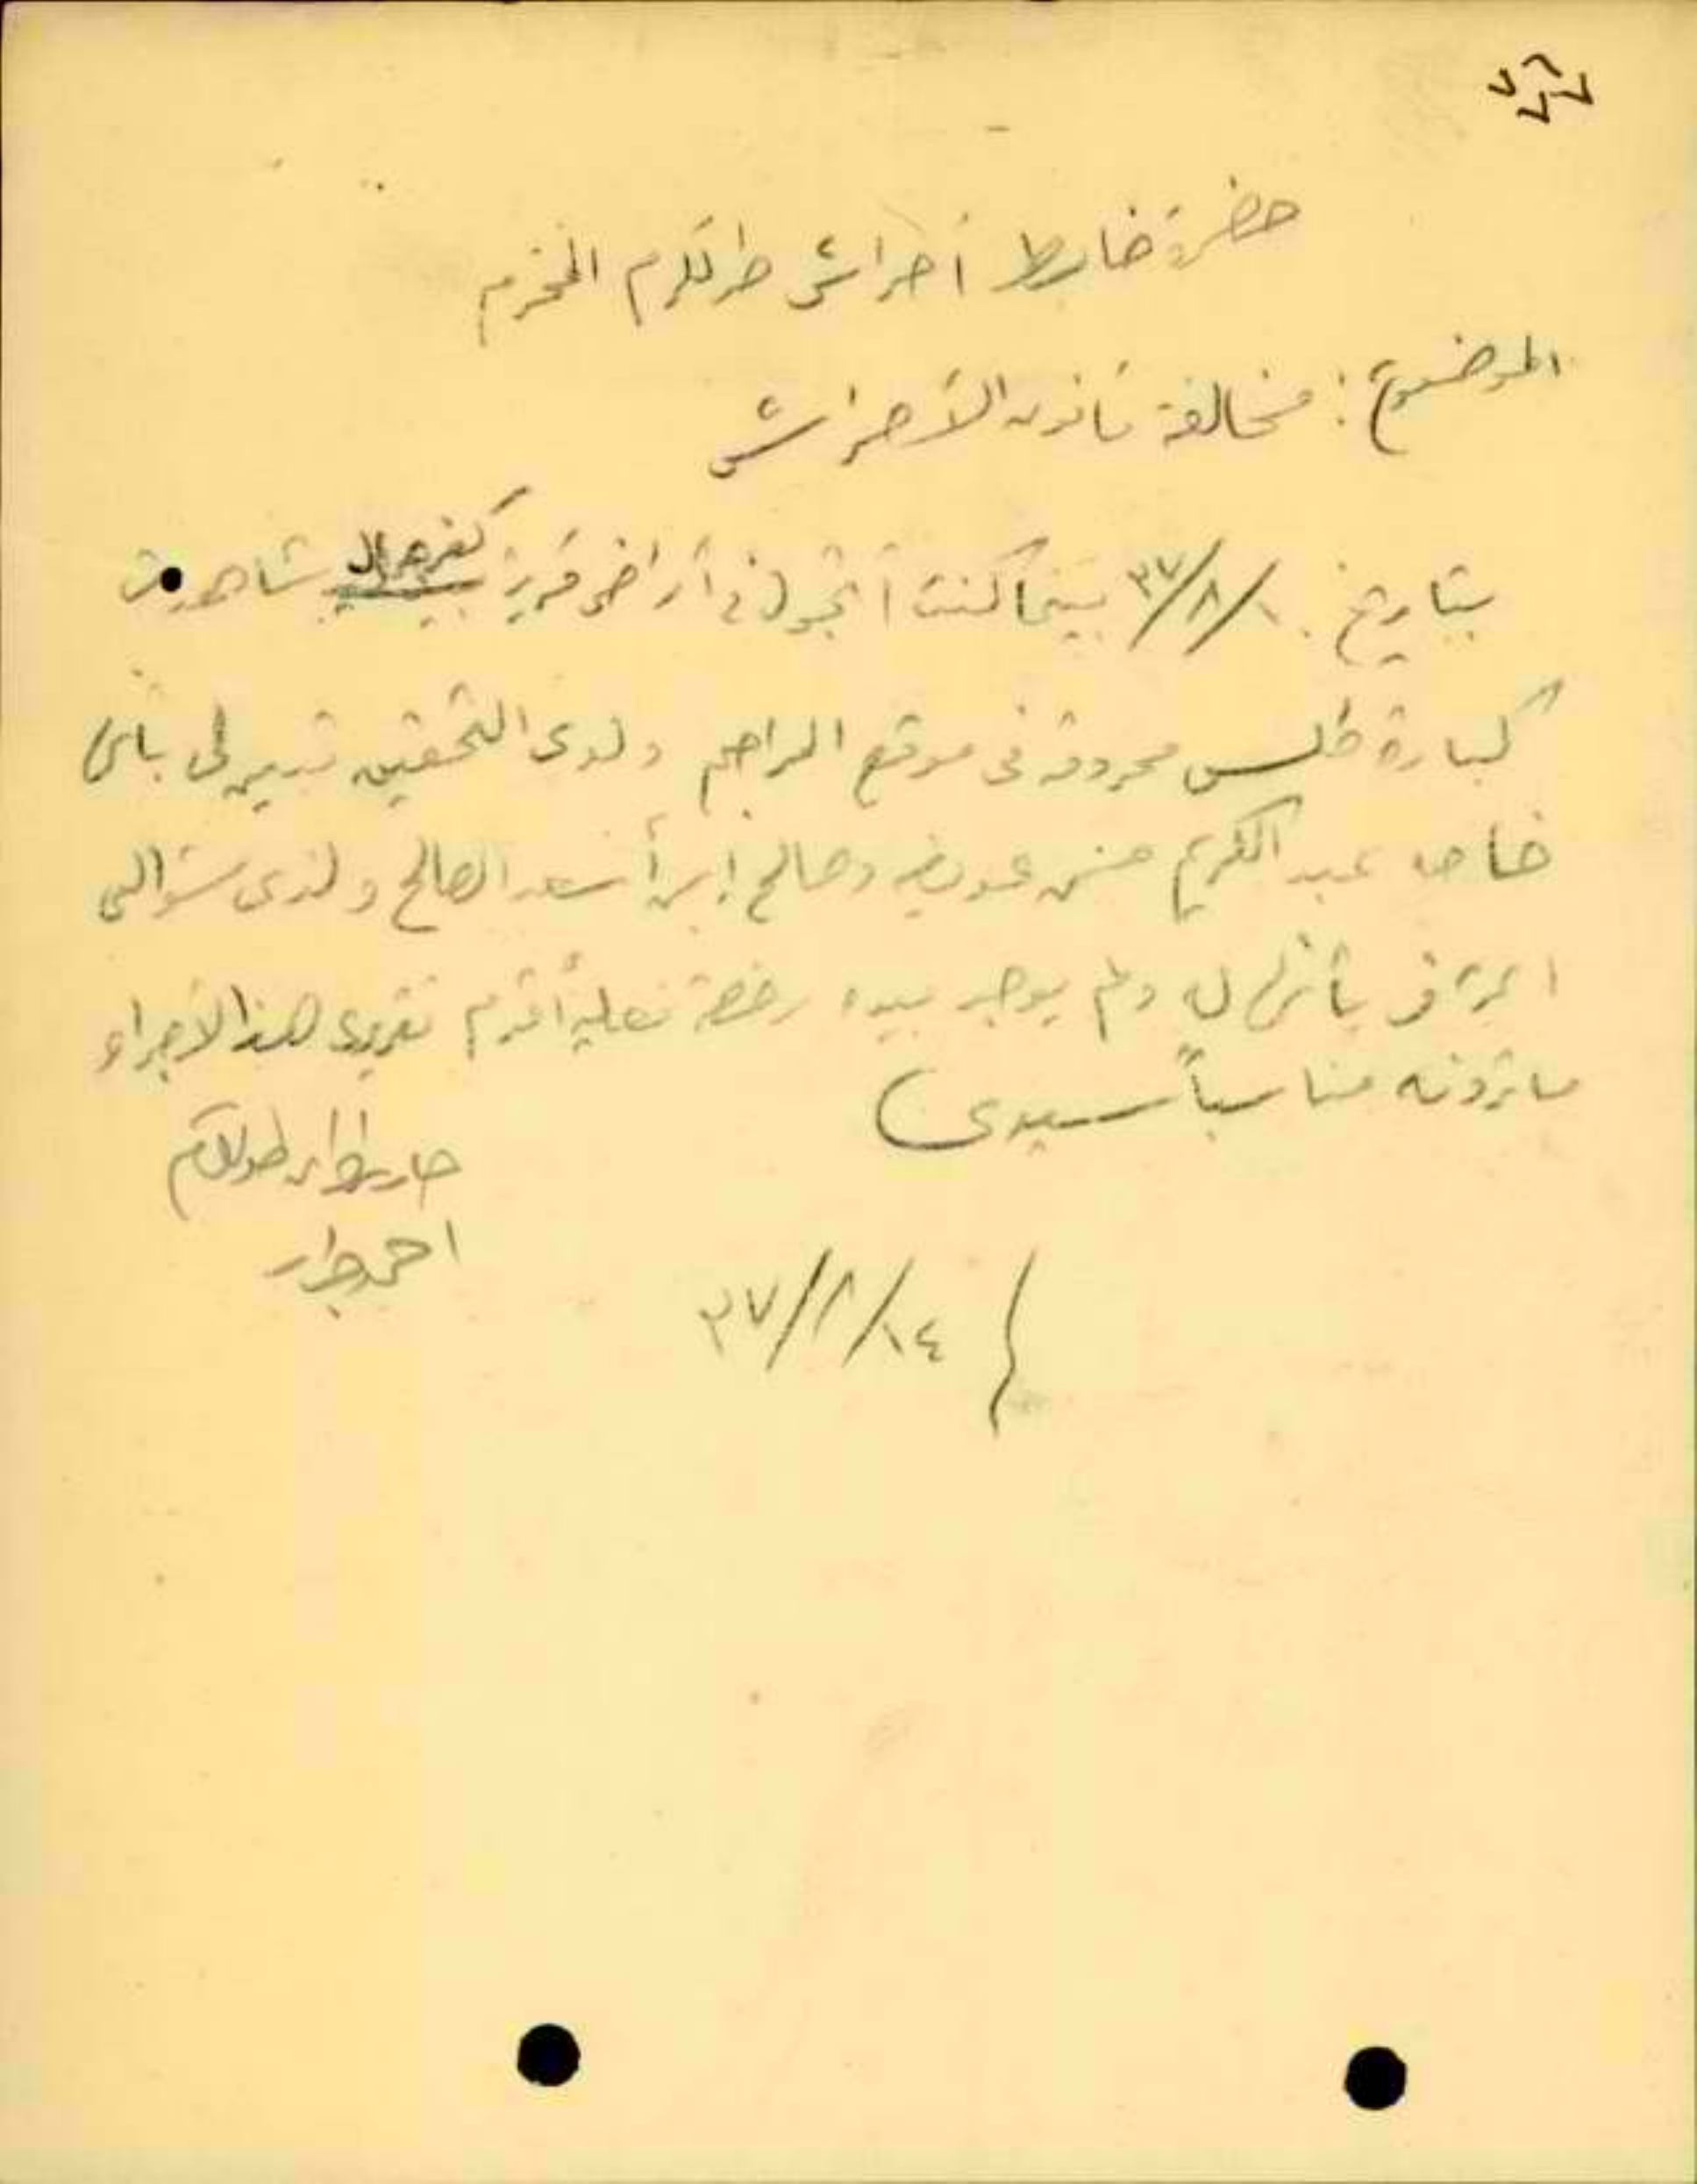 حضرة ضابط أحراش طولكرم المحترم
الموضوع: مخالفة قانون الأحراش
بتاريخ ١٠/٨/٣٧ بينما كنت أتجول في أراضي قرية كفر جمال شاهدت
كبارة كلس محروقة في موقع المراجم ولدى التحقيق تبين لي بأن
خاصة عبد الكريم حسن عويضه وصالح ابن أسعد الصالح ولدى سؤالي
اعترف بأنها له ولم يوجد بيده رخصة فعليه أقدم تقريري هذا لإجراء
ما ترونه مناسباً سيدي
طولكرم
احمد جرار
١٤/٨/٣٧